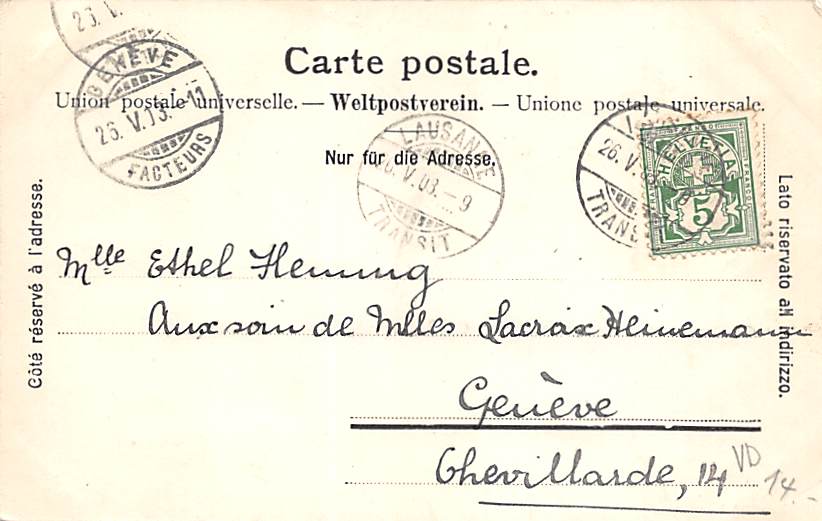 23. V.
GENÈVE
26. V. 03.-11
FACTEURS
Carte postale.
Union postale universelle. — Weltpostverein. — Unione postale universale.
Nur für die Adresse.
LAUSANNE
26. V. 03. - 9
TRANSIT
26. V. 03
TRANSIT
FRANCO
HELVETIA
5
Côté réservé à l'adresse.
Lato riservato all indirizzo.
Mlle Ethel Fleming
Aux soin de Mlles Lacroix Heinemann
Genève
Chevillarde, 14
VD
14.-